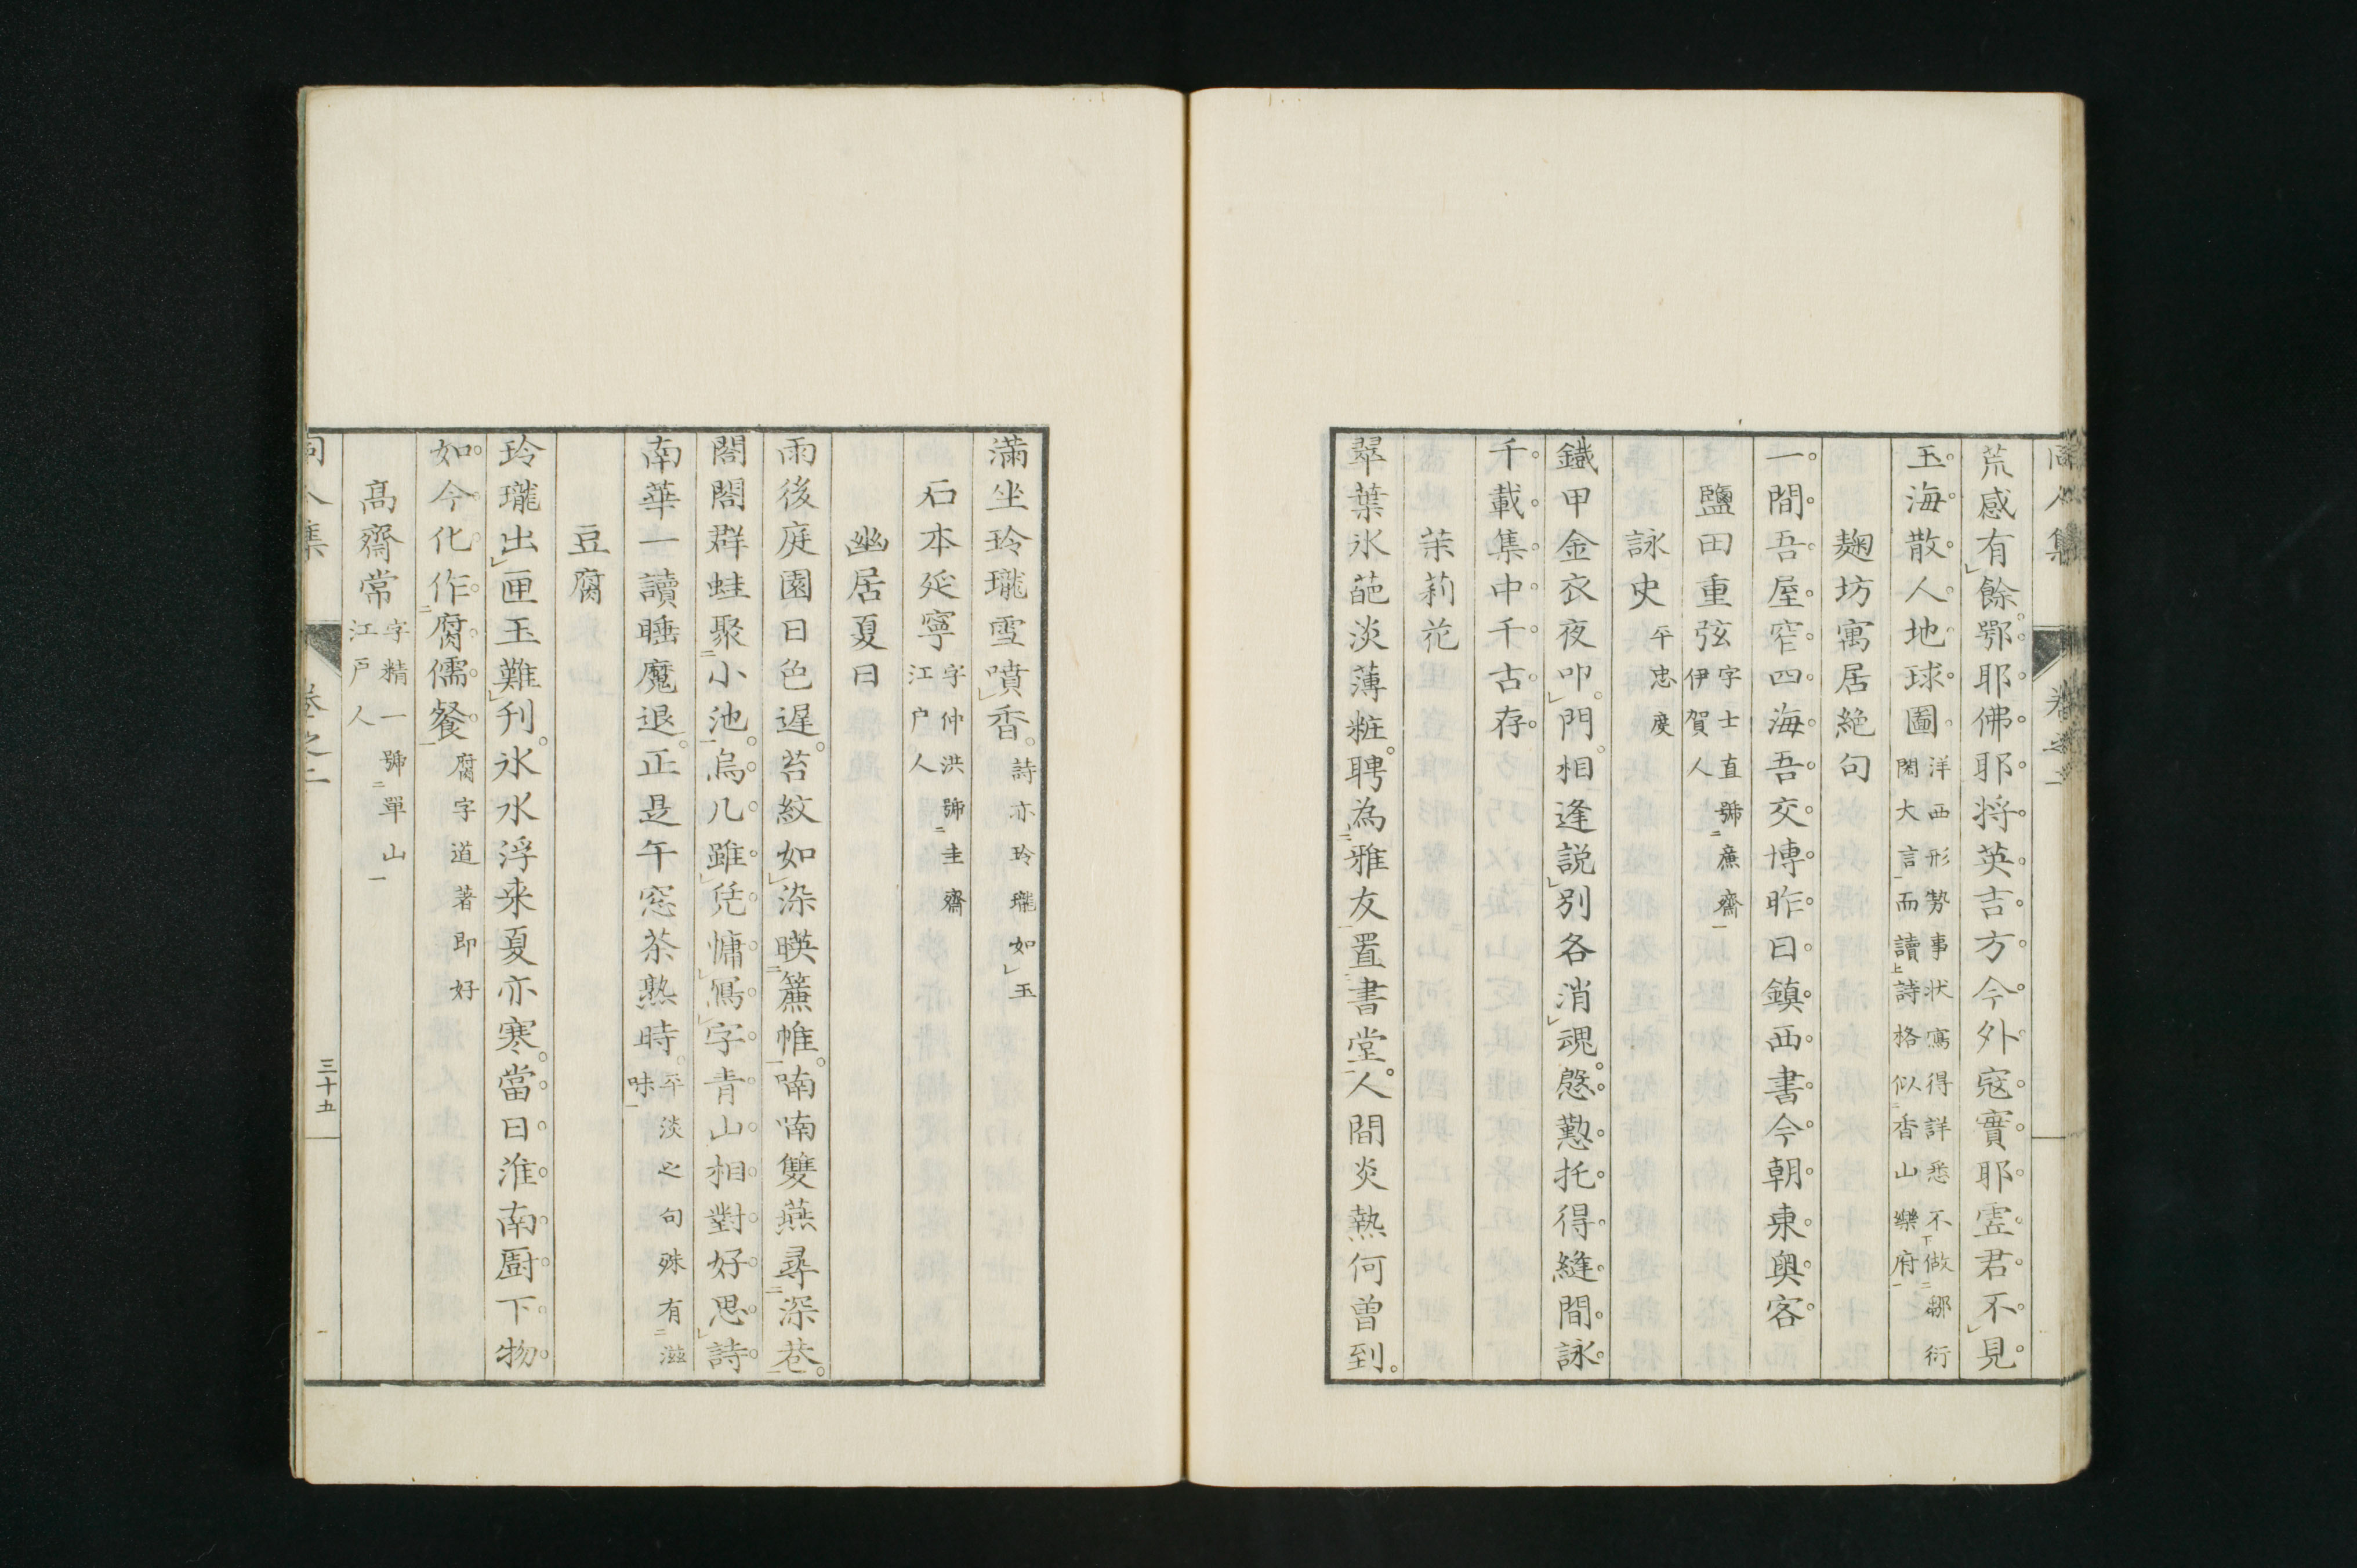 同人集 卷之二
荒感有餘鄂耶佛耶将英吉方今外寇實耶虚君不見
玉海散人地球圖 洋西形勢事状寫得詳悉不做鄒衍
閎大言而讀詩格似香山樂府
麹坊寓居絶句
一間吾屋窄四海吾交博昨日鎮西書今朝東奥客
鹽田重弦 字士直號鹿齋
伊賀人
詠史 平忠度
鐵甲金衣夜叩門相逢説別各消魂慇懃托得縫間詠
千載集中千古存
茉莉花
翠葉氷葩淡薄粧聘為雅友置書堂人間炎熱何曽到
滿坐玲瓏雪噴香 詩亦玲瓏如玉
石本延寧 字仲洪號圭齋
江户人
幽居夏日
雨後庭園日色遲苔紋如染暎簾帷喃喃雙燕尋深巷
閤閤群蛙聚小池烏几雖凭慵寫字青山相對好思詩
南華一讀睡魔退正是午窓茶熟時 平淡之句殊有滋
味
豆腐
玲瓏出匣玉難刋氷水浮来夏亦寒當日淮南厨下物
如今化作腐儒餐 腐字道著即好
髙齋常 字精一號單山
江戸人
同人集 卷之二 三十五